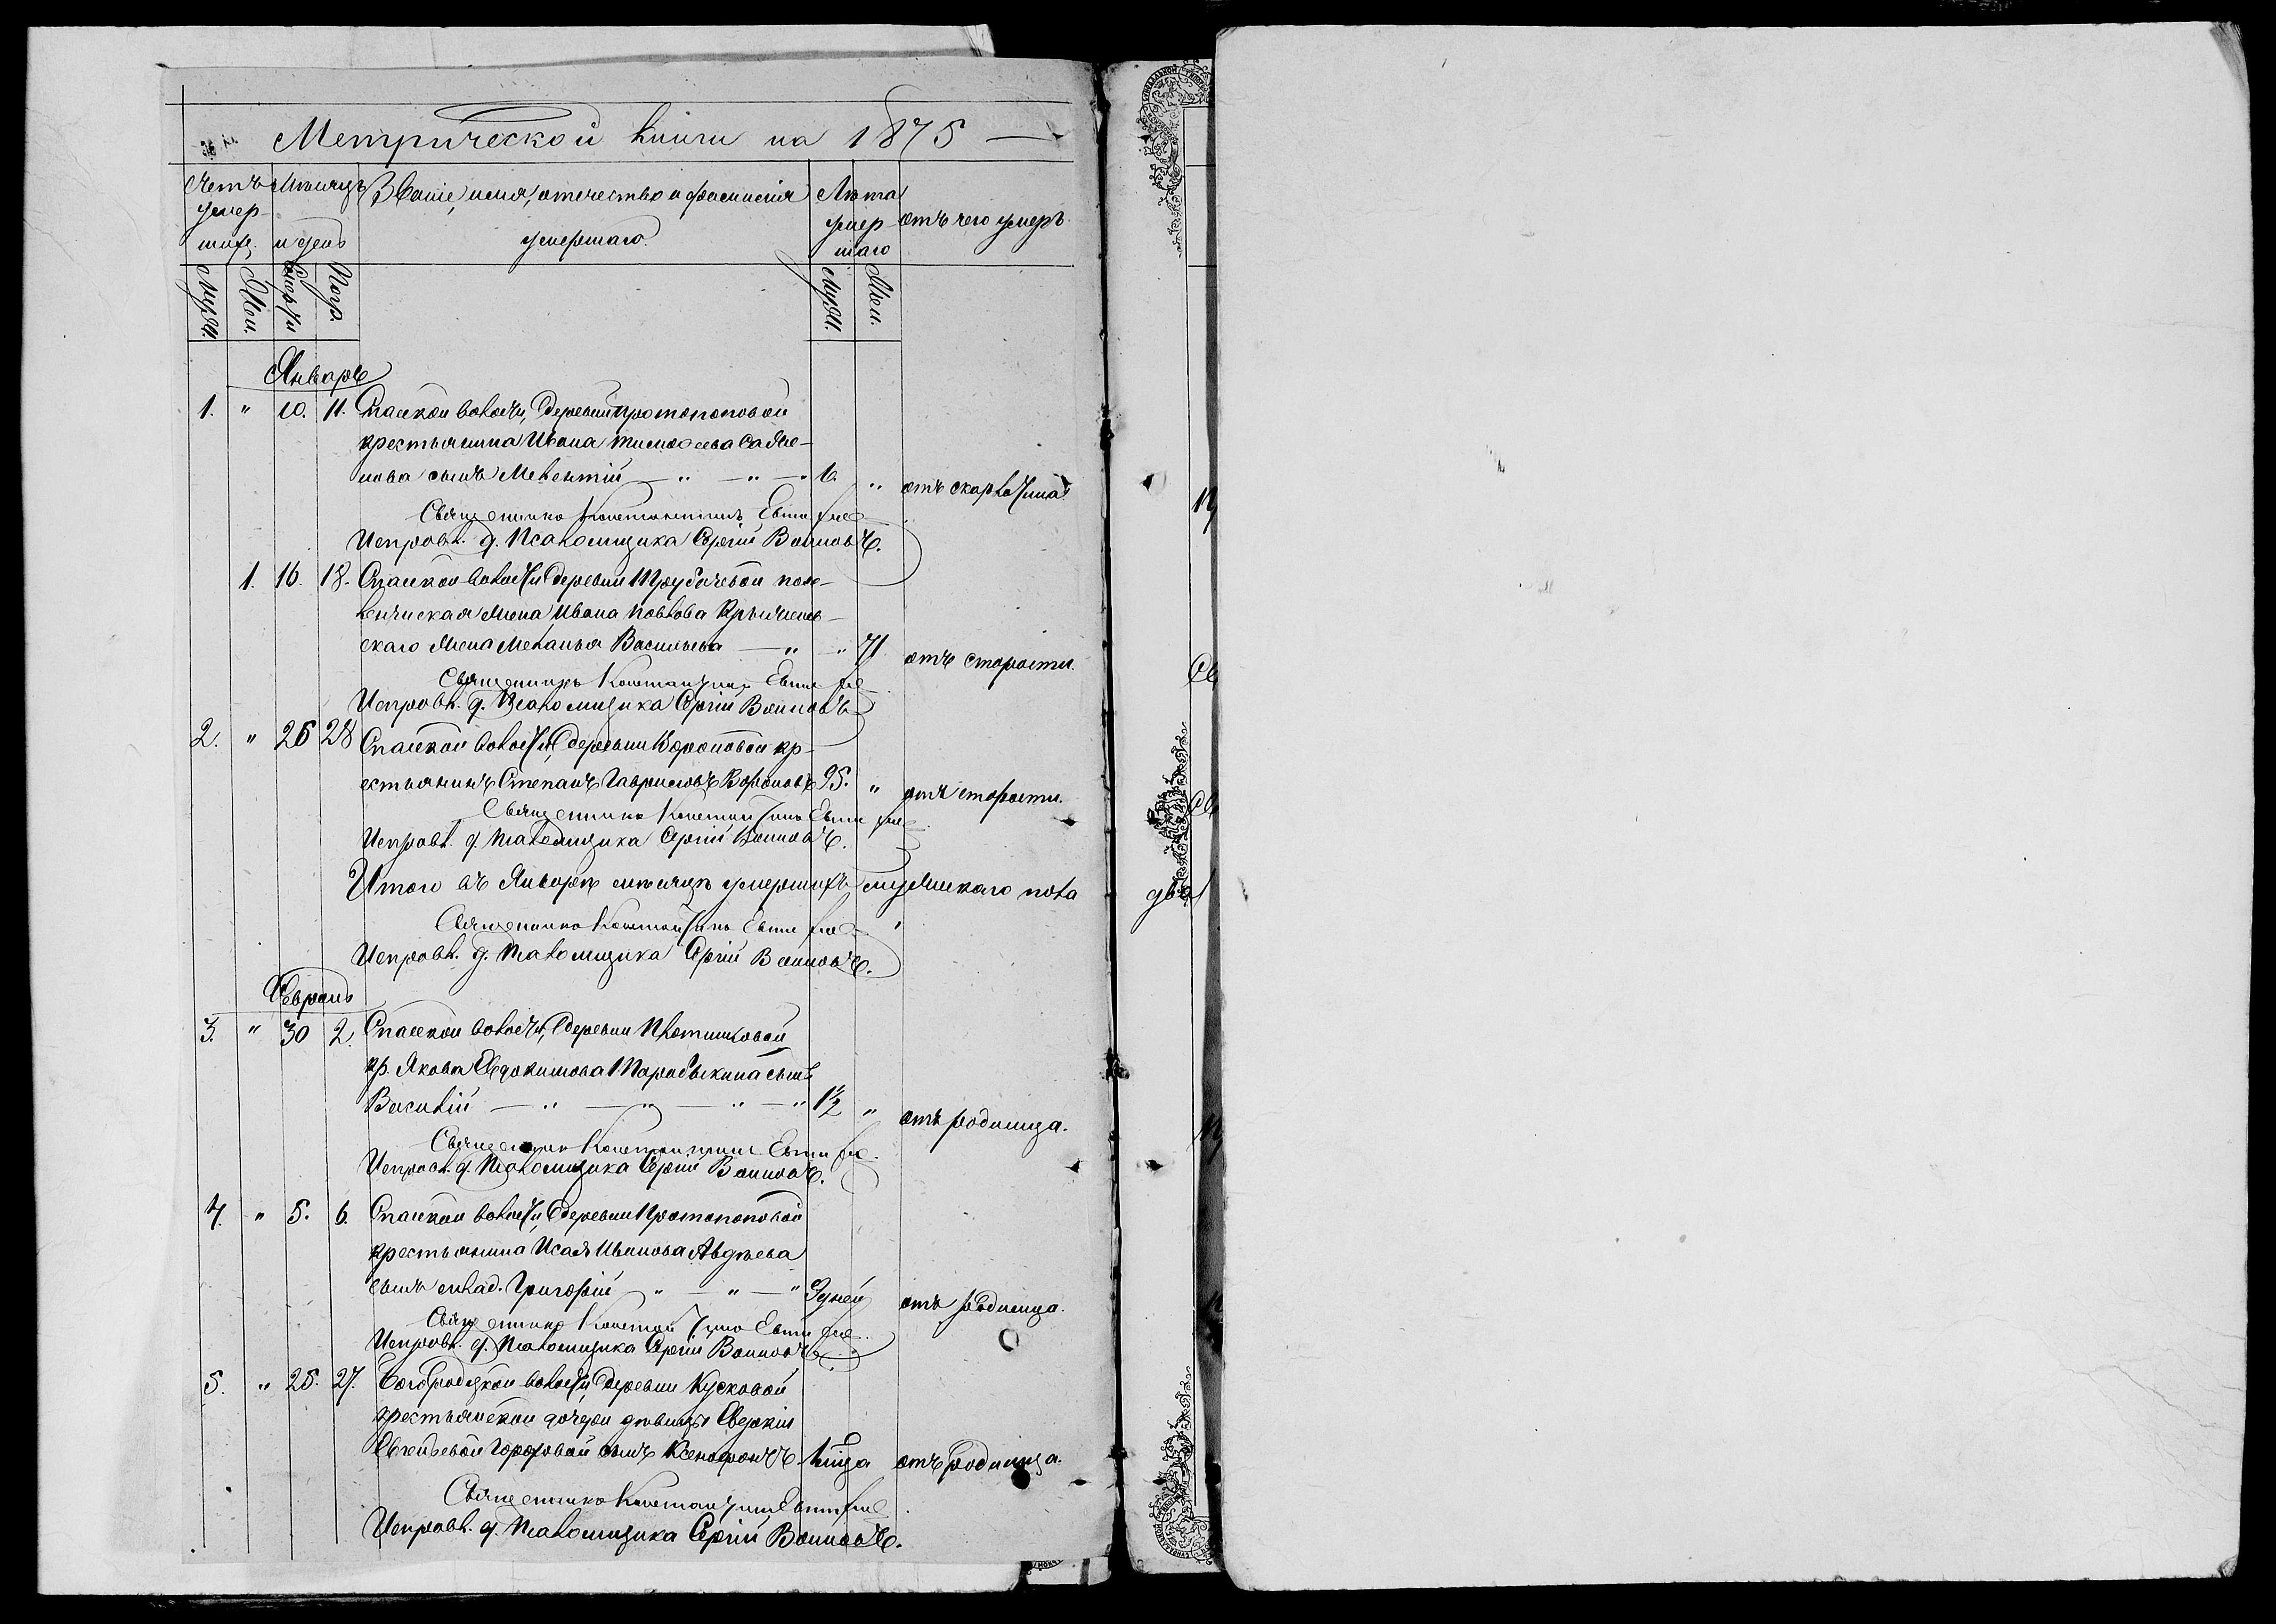 Метрической книги на 1875
Счетъ умершихъ. Мѣсяцъ и день Званіе, имя, отчество и фамилія умершаго. Лѣта умершаго отъ чего умеръ
Муж. Жен. Смерти Погр. Муж. Жен.
Январь
1. " 10. 11. Спасской волости, деревни Протопоповой
крестьянина Ивана Тимоѳеева
нова сынъ Мелентій — " — " — " 6. " отъ скарлатина
Священникъ Константинъ
Исправл. д. Псаломщика Сергій Воиновъ.
1. 16. 18. Спасской волости, деревни Трубачевой
жена Ивана Павлова
скаго жена Меланья Васильева — " " 71 отъ старости.
Священникъ Константинъ
Исправл. д. Псаломщика Сергій Воиновъ
2. " 26 28 Спасской волости, деревни Вороновой кр-
естьянинъ Степанъ Гавриловъ Вороновъ 95. " отъ старости.
Священникъ Константинъ
Исправл. д. Псаломщика Сергій Воиновъ.
Итого въ Январѣ мѣсяцѣ умершихъ мужескаго пола два
Священникъ Константинъ
Исправл. д. Псаломщика Сергій Воиновъ.
Февраль
3. " 30 2. Спасской волости, деревни Плотниковой
кр. Якова Евдокимова Парабыкина сынъ
Василій — " — " — " — " 1½ " отъ родимца.
Священникъ Константинъ
Исправл. д. Псаломщика Сергій Воиновъ.
4. " 5. 6. Спасской волости, деревни Протопоповой
крестьянина Исая Иванова Авдѣева
сынъ млад. Григорій " — " — " 9 дней отъ родимца.
Священникъ Константинъ
Исправл. д. Псаломщика Сергій Воиновъ
5. " 25. 27. Богородцкой волости, деревни Кусковой
крестьянской дочери дѣвицы Евдокіи
сынъ Ксенофонтъ отъ родимца.
Священникъ Константинъ
Исправл. д. Псаломщика Сергій Воиновъ.